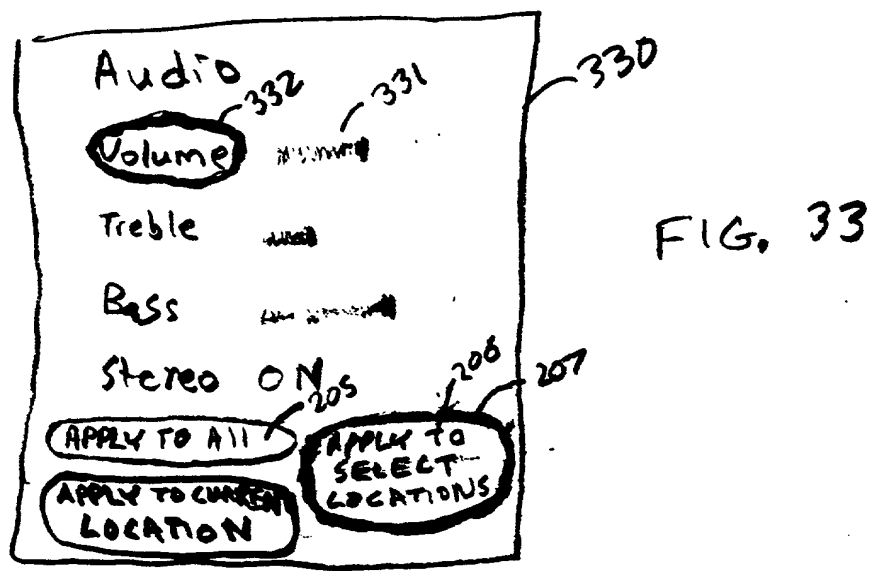 Audio
332
331
330
Volume
Treble
FIG. 33
Bass
Stereo ON
205
206
207
APPLY TO All
APPLY TO
SELECT
LOCATIONS
APPLY TO CURREN
LOCATION